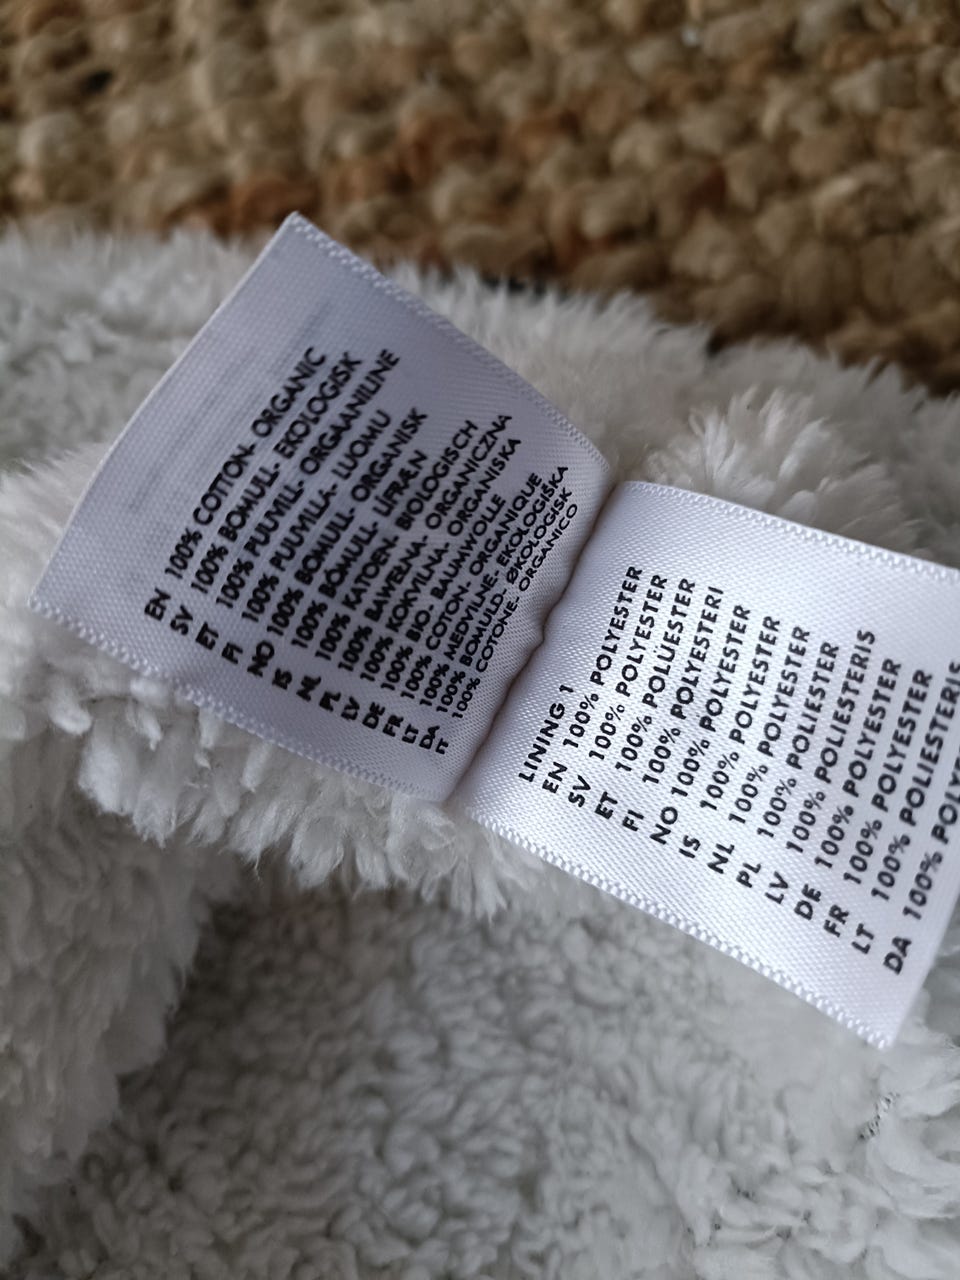 EN 100% COTTON- ORGANIC
SV 100% BOMULL- EKOLOGISK
ET 100% PUUVILL- ORGANILINE
FI 100% PUUVILLA- LUOMU
NO 100% BOMULL- ORGANISK
IS 100% BÓMULL- LÍFRÆN
NL 100% KATOEN- BIOLOGISCH
PL 100% BAWEŁNA- ORGANICZNA
LV 100% KOKVILNA- ORGANISKA
DE 100% BIO- BAUMWOLLE
FR 100% COTON- ORGANIQUE
LT 100% MEDVILNĖ- EKOLOGIŠKA
DA 100% BOMULD- ØKOLOGISK
IT 100% COTONE- ORGANICO
LINING 1
EN 100% POLYESTER
SV 100% POLYESTER
ET 100% POLÜESTER
FI 100% POLYESTERI
NO 100% POLYESTER
IS 100% POLYESTER
NL 100% POLYESTER
PL 100% POLIESTER
LV 100% POLIESTERIS
DE 100% POLYESTER
FR 100% POLYESTER
LT 100% POLIESTERIS
DA 100%